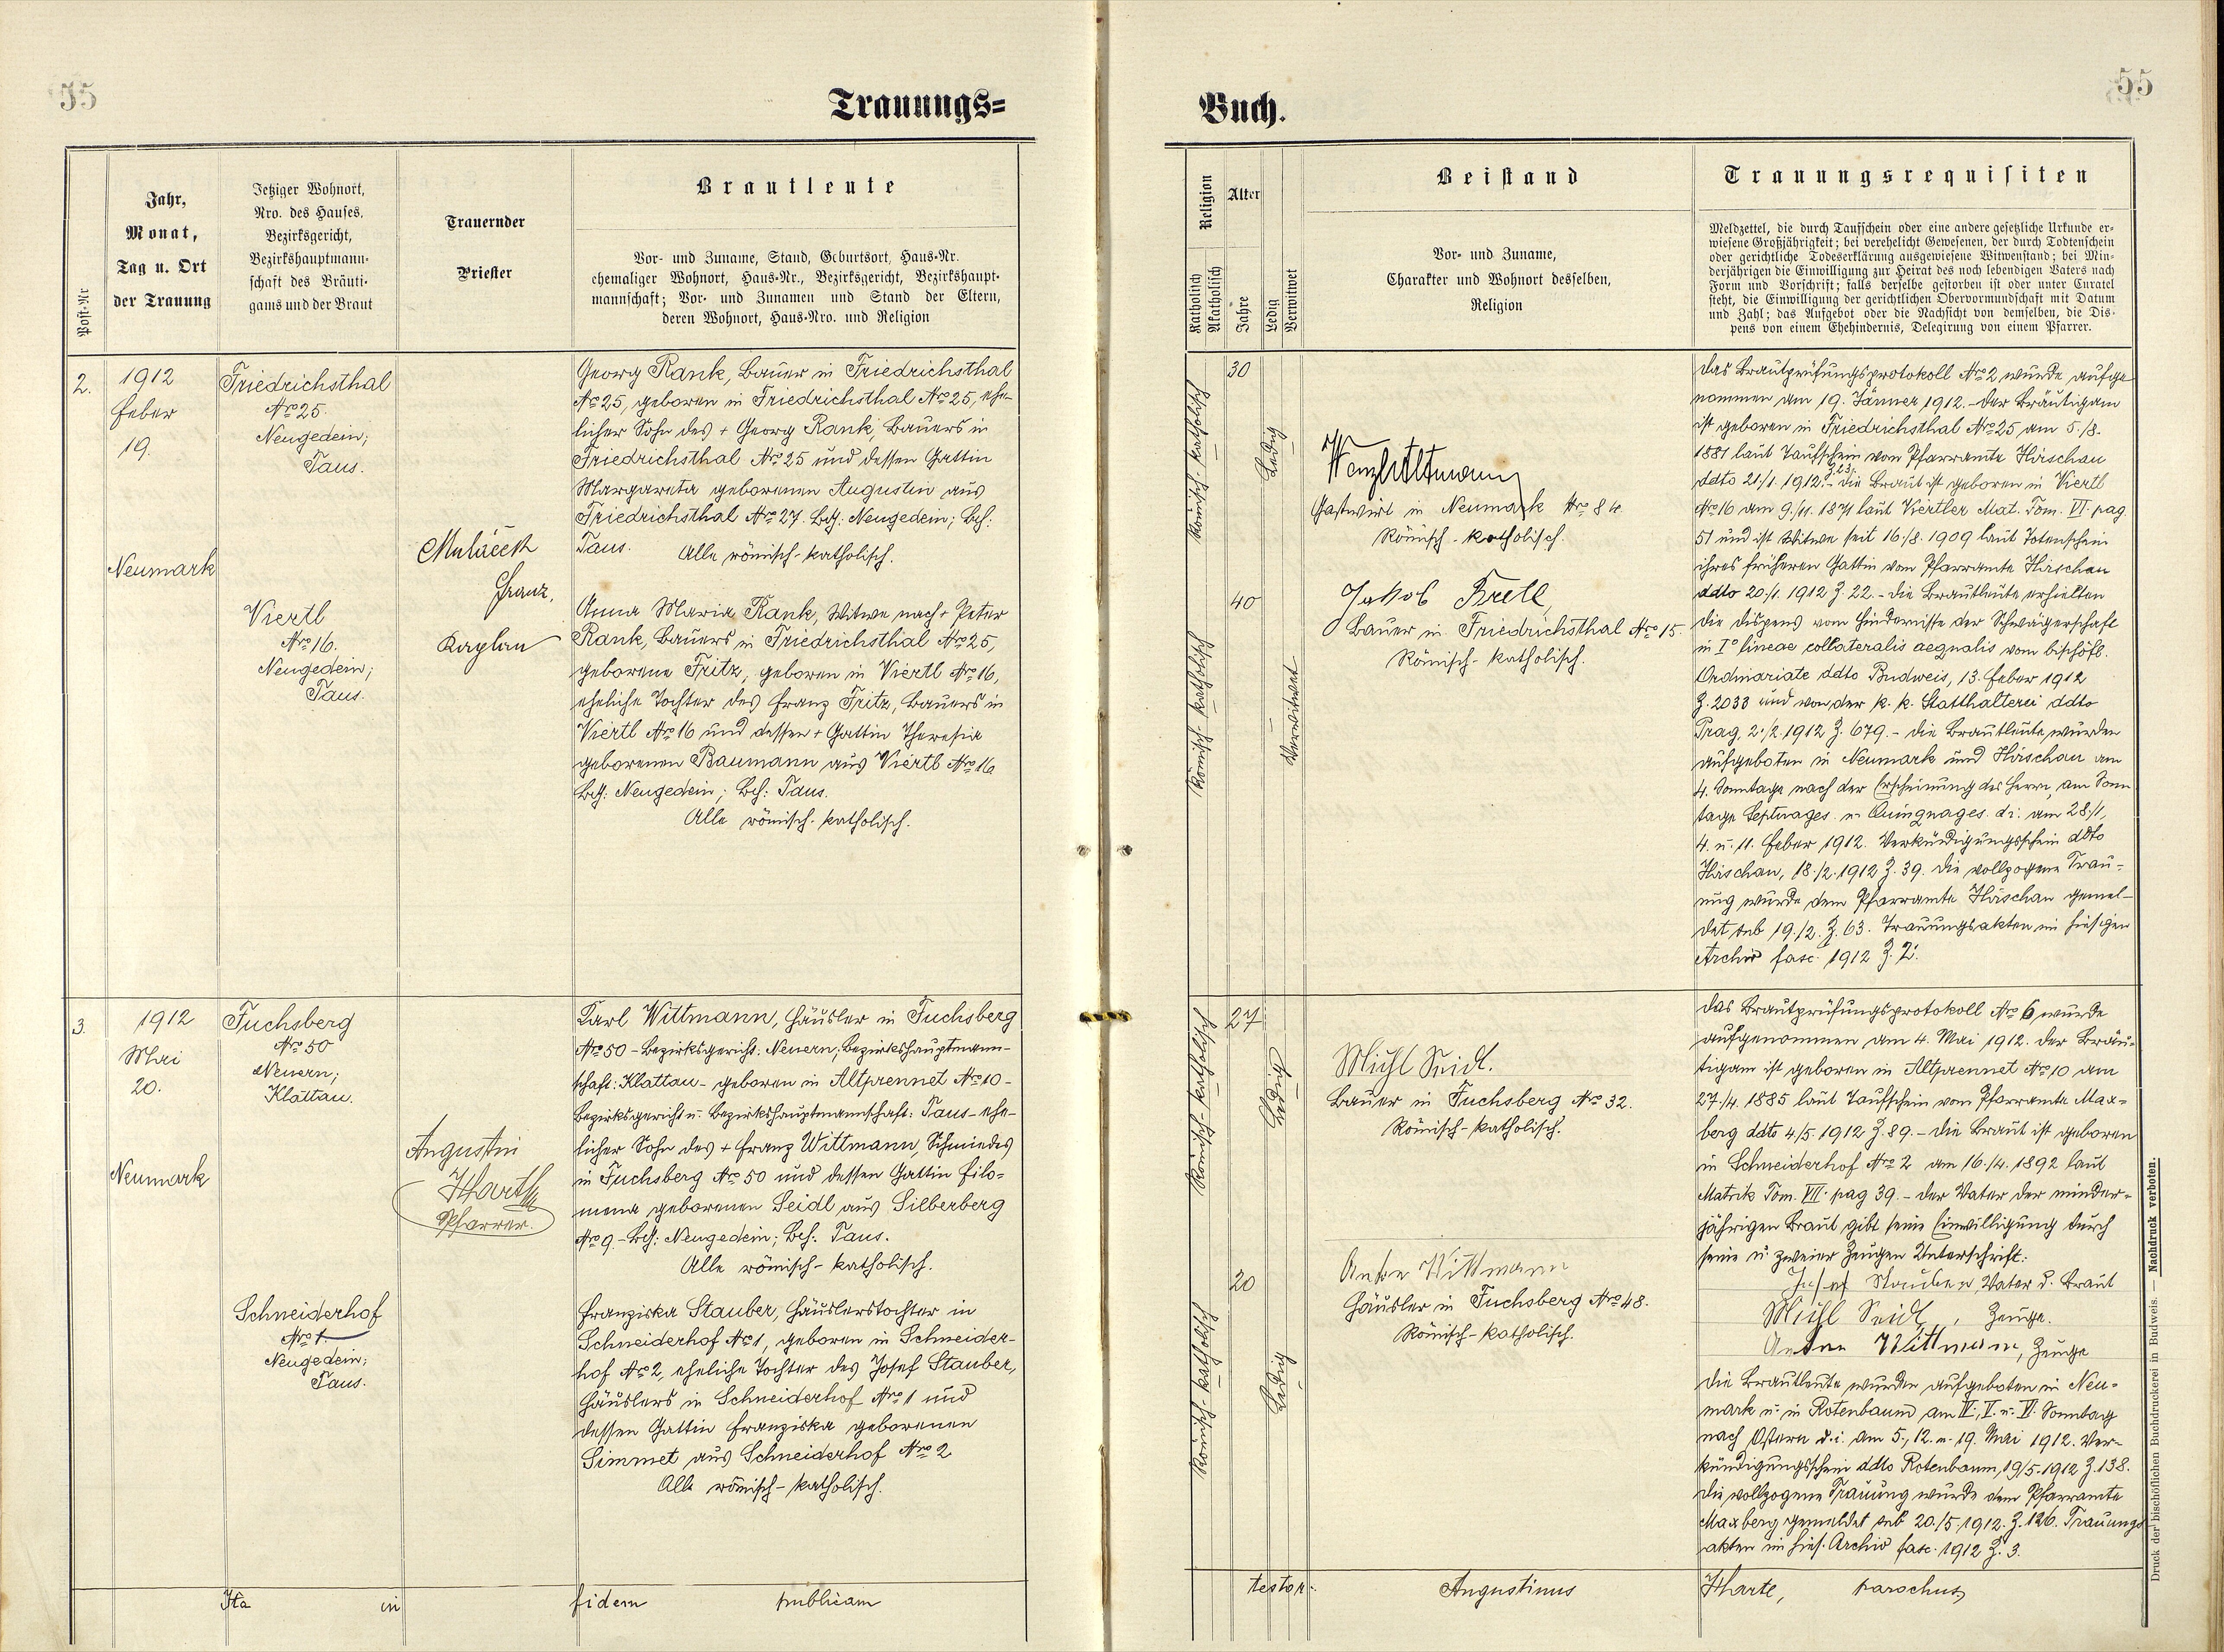 55
Trauungs=
Post-Nr
Jahr,
Monat,
Tag u. Ort
der Trauung
Jetziger Wohnort,
Nro. des Hauses,
Bezirksgericht,
Bezirkshauptmann-
schaft des Bräuti-
gams und der Braut
Trauernder
Priester
Brautleute
Vor- und Zuname, Stand, Geburtsort, Haus-Nr.
ehemaliger Wohnort, Haus-Nr., Bezirksgericht, Bezirkshaupt-
mannschaft; Vor- und Zunamen und Stand der Eltern,
deren Wohnort, Haus-Nro. und Religion
2.
1912
Feber
19.
Neumark
Friedrichsthal
Nro 25.
Neugedein;
Taus.
Viertl
Nro 16.
Neugedein;
Taus.
Franz,
Kaplan
Georg Rank, Bauer in Friedrichsthal
Nro 25, geboren in Friedrichsthal Nro 25, ehe-
licher Sohn des + Georg Rank, Bauers in
Friedrichsthal Nro 25 und dessen Gattin
Margareta geborenen Augustin aus
Friedrichsthal Nro 27. Bzg: Neugedein; Bzh:
Taus. Alle römisch-katholisch.
Anna Maria Rank, Witwe nach + Peter
Rank, Bauers in Friedrichsthal Nro 25,
geborene Fritz, geboren in Viertl Nro 16,
eheliche Tochter des Franz Fritz, Bauers in
Viertl Nro 16 und dessen + Gattin Theresia
geborenen Baumann aus Viertl Nro 16
Bzg: Neugedein; Bzh: Taus.
Alle römisch-katholisch.
3.
1912
Mai
20.
Neumark
Fuchsberg
Nro 50
Neuern;
Klattau.
Schneiderhof
Nro 1
Neugedein;
Taus.
Augustin
Harte
Pfarrer.
Karl Wittmann, Häusler in Fuchsberg
Nro 50 - Bezirksgericht: Neuern; Bezirkshauptmann-
schaft: Klattau - geboren in Altprennet Nro 10 -
Bezirksgericht u. Bezirkshauptmannschaft: Taus - ehe-
licher Sohn des + Franz Wittmann, Schmiedes
in Fuchsberg Nro 50 und dessen Gattin Filo-
mena geborenen Seidl aus Silberberg
Nro 9. - Bzg: Neugedein; Bzh: Taus.
Alle römisch-katholisch.
Franziska Stauber, Häuslerstochter in
Schneiderhof Nro 1, geboren in Schneider-
hof Nro 2, eheliche Tochter des Josef Stauber,
Häuslers in Schneiderhof Nro 1 und
dessen Gattin Franziska geborenen
Simmet aus Schneiderhof Nro 2
Alle römisch-katholisch.
Ita in fidem publicam
55
Buch.
Religion
Katholisch
Akatholisch
Alter
Jahre
Ledig
Verwitwet
Beistand
Vor- und Zuname,
Charakter und Wohnort desselben,
Religion
Trauungsrequisiten
Meldzettel, die durch Taufschein oder eine andere gesetzliche Urkunde er-
wiesene Großjährigkeit; bei verehelicht Gewesenen, der durch Todtenschein
oder gerichtliche Todeserklärung ausgewiesene Witwenstand; bei Min-
derjährigen die Einwilligung zur Heirat des noch lebendigen Vaters nach
Form und Vorschrift; falls derselbe gestorben ist oder unter Curatel
steht, die Einwilligung der gerichtlichen Obervormundschaft mit Datum
und Zahl; das Aufgebot oder die Nachsicht von demselben, die Dis-
pens von einem Ehehindernis, Delegirung von einem Pfarrer.
Römisch-katholisch
30
Ledig
Römisch-katholisch
40
Verwitwet
Wenzl Altmann
Gastwirt in Neumark Nro 84.
Römisch-katholisch.
Jakob Bretl,
Bauer in Friedrichsthal Nro 15.
Römisch-katholisch.
Das Brautprüfungsprotokoll Nro 2 wurde aufge
nommen am 19. Jänner 1912. - Der Bräutigam
ist geboren in Friedrichsthal Nro 25 am 5./8.
1881 laut Taufschein vom Pfarramte Hirschau
ddto 21./1. 1912. Z. 23. - Die Braut ist geboren in Viertl
Nro 16 am 9./11. 1871 laut Viertler Mat. Tom. VI. pag
51 und ist Witwe seit 16./8. 1909 laut Totenschein
ihres früheren Gattin vom Pfarramte Hirschau
ddto 20./1. 1912 Z. 22. - Die Brautleute erhielten
die Dispens vom Hindernisse der Schwägerschaft
in I° lineae collateralis aequalis vom bischöfl.
Ordinariate ddto Budweis, 13. Feber 1912
Z. 2033 und von der k. k. Statthalterei ddto
Prag, 2./2. 1912 Z. 679. - Die Brautleute wurden
aufgeboten in Neumark und Hirschau am
4. Sonntage nach der Erscheinung des Herrn, am Sonn
tage Septuages. u. Quinquages. d. i. am 28./1,
4. u. 11. Feber 1912. Verkündigungsschein ddto
Hirschau, 18./2. 1912 Z. 39. Die vollzogene Trau-
ung wurde dem Pfarramte Hirschau gemel-
det sub 19./2. Z. 63. Trauungsakten im hiesigen
Archiv fasc. 1912 Z. 2.
Römisch-katholisch
27
Ledig
Römisch-katholisch
20
Ledig
Michl Seidl.
Bauer in Fuchsberg Nro 32.
Römisch-katholisch.
Anton Wittmann
Häusler in Fuchsberg Nro 48.
Römisch-katholisch.
Das Brautprüfungsprotokoll Nro 6 wurde
aufgenommen am 4. Mai 1912. Der Bräu-
tigam ist geboren in Altprennet Nro 10 am
27./4. 1885 laut Taufschein vom Pfarramte Max-
berg ddto 4./5. 1912 Z. 89. - Die Braut ist geboren
in Schneiderhof Nro 2 am 16./4. 1892 laut
Matrik Tom. VII. pag 39. - Der Vater der minder-
jährigen Braut gibt seine Einwilligung durch
seine u. zweier Zeugen Unterschrift:
Josef Stauber, Vater d. Braut
Michl Seidl, Zeuge.
Anton Wittmann, Zeuge
Die Brautleute wurden aufgeboten in Neu-
mark u. in Rotenbaum am IV., V. u. VI. Sonntag
nach Ostern d. i. am 5., 12. u. 19. Mai 1912. Ver-
kündigungsschein ddto Rotenbaum, 19/5. 1912 Z. 138.
Die vollzogene Trauung wurde dem Pfarramte
Maxberg gemeldet sub 20./5. 1912. Z. 126. Trauungs
akten im hies. Archiv fasc. 1912 Z. 3.
testor: Augustinus Harte, parochus
Druck der bischöflichen Buchdruckerei in Budweis. — Nachdruck verboten.